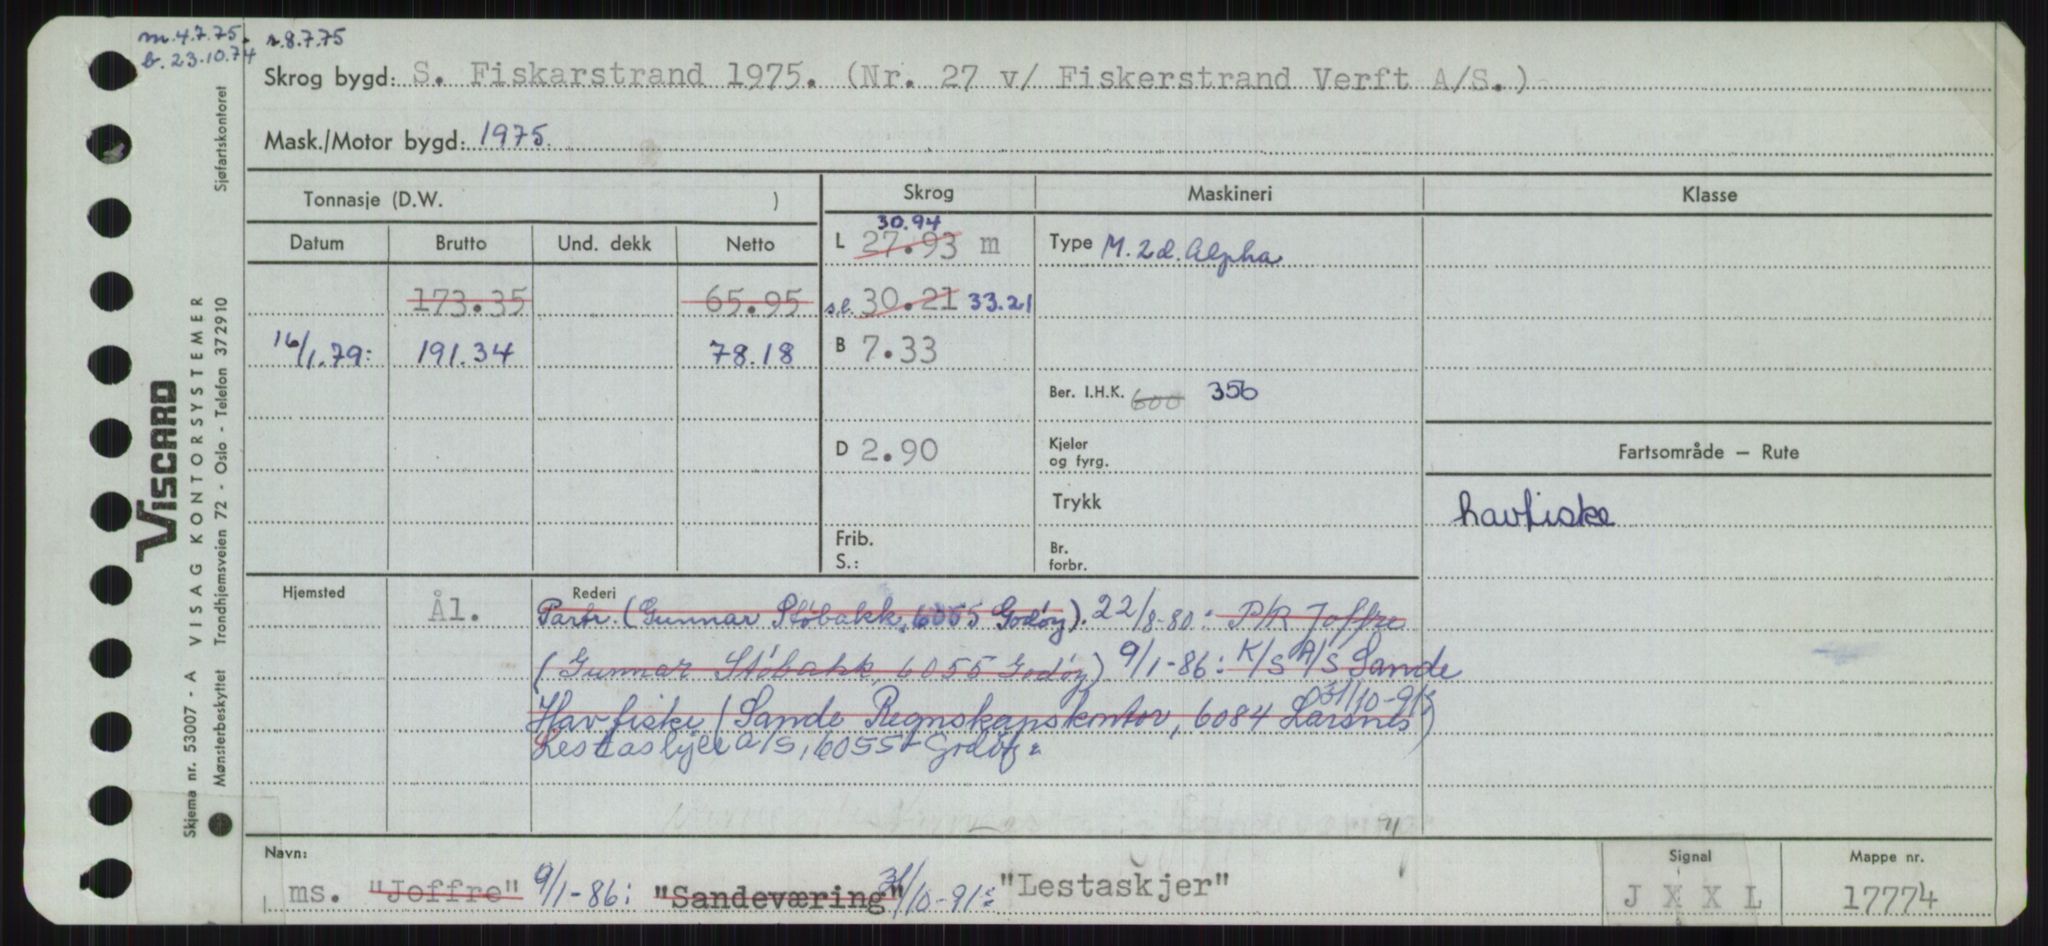 m. 4.7.75. r.8.7.75
b. 23.10.74
Skrog bygd: S. Fiskarstrand 1975. (Nr. 27 v/ Fiskerstrand Verft A/S.)
Mask./Motor bygd: 1975.
Tonnasje (D.W. )
Skrog
Maskineri
Klasse
Datum Brutto Und. dekk Netto
30.94
L 27.93 m
Type M. 2d. Alpha
173.35 65.95
s.l. 30.21 33.21
16/1.79: 191.34 78.18
B 7.33
Ber. I.H.K. 600 356
D 2.90
Kjeler
og fyrg.
Fartsområde — Rute
Trykk
havfiske
Frib.
S.:
Br.
forbr.
Hjemsted Ål.
Rederi
Partr. (Gunnar Støbakk, 6055 Godøy). 22/8-80: P/R Joffre
(Gunnar Støbakk, 6055 Godøy) 9/1-86: K/S A/S Sande
Havfiske (Sande Regnskapskontor, 6084 Larsnes) 31/10-91:
Lestaskjer a/s, 6055 Godøy.
Navn:
ms. "Joffre" 9/1-86: "Sandeværing" 31/10-91: "Lestaskjer"
Signal
J X X L
Mappe nr.
17774
VISCARD
Skjema nr. 53007 - A VISAG KONTORSYSTEMER
Mønsterbeskyttet Trondhjemsveien 72 - Oslo - Telefon 372910 Sjøfartskontoret